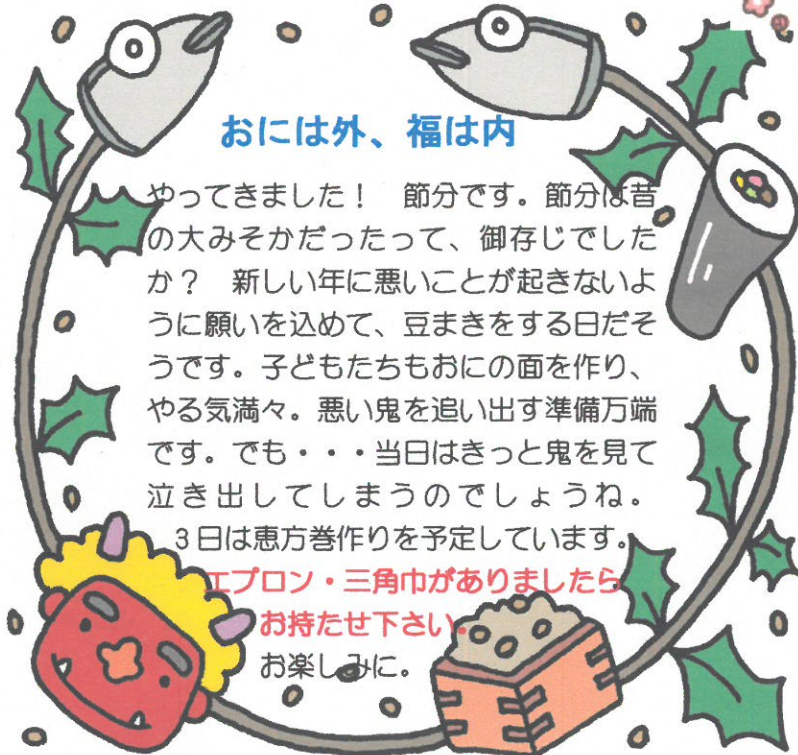 おには外、福は内
やってきました！　節分です。節分は昔
の大みそかだったって、御存じでした
か？　新しい年に悪いことが起きないよ
うに願いを込めて、豆まきをする日だそ
うです。子どもたちもおにの面を作り、
やる気満々。悪い鬼を追い出す準備万端
です。でも・・・当日はきっと鬼を見て
泣き出してしまうのでしょうね。
３日は恵方巻作りを予定しています。
エプロン・三角巾がありましたら
お持たせ下さい。
お楽しみに。